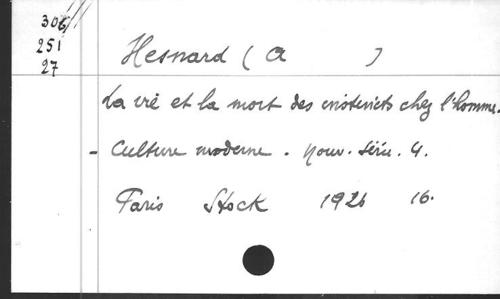 306
251
27
Hesnard (A )
La vie et la mort des instincts chez l'homme.
- Culture moderne. Nouv. Série. 4.
Paris Stock 1926 16.